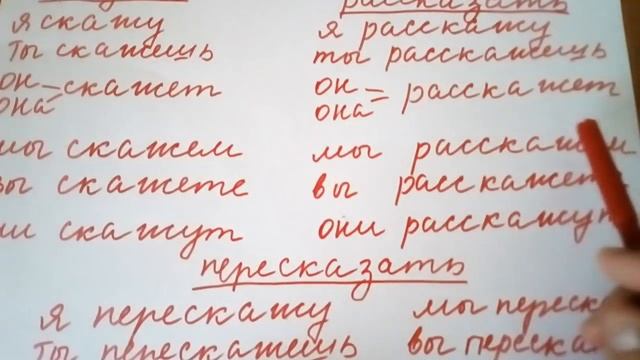 я скажу
ты скажешь
он
она = скажет
мы скажем
вы скажете
ни скажут
рассказать
я расскажу
ты расскажешь
он
она = расскажет
мы расскажем
вы расскажете
они расскажут
пересказать
я перескажу
ты перескажешь
мы
вы